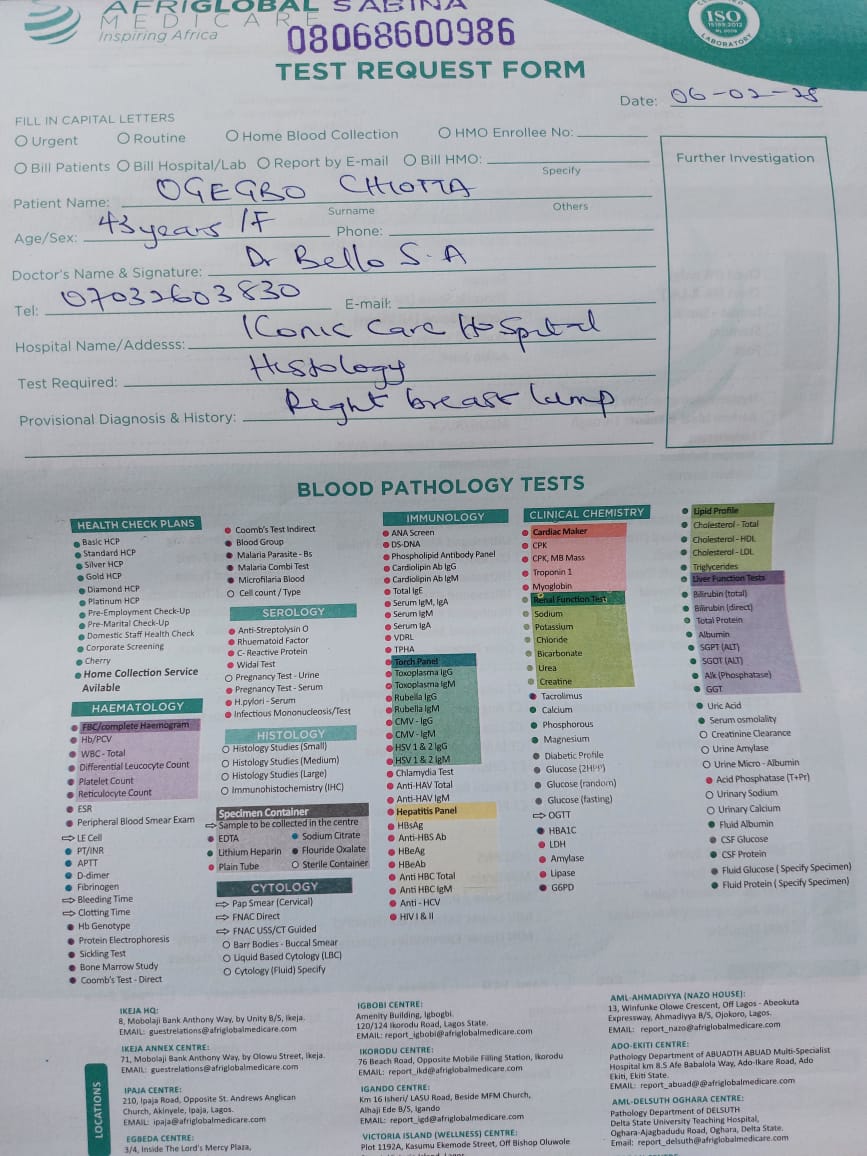 AFRIGLOBAL SABINA
MEDICARE
Inspiring Africa
08068600986
ISO
LABORATORY
TEST REQUEST FORM
Date: 06-02-28
FILL IN CAPITAL LETTERS
Urgent Routine Home Blood Collection HMO Enrollee No:
Bill Patients Bill Hospital/Lab Report by E-mail Bill HMO:
Specify
Further Investigation
Patient Name: OGEGBO CHIOTTA
Surname Others
Age/Sex: 43 years /F Phone:
Doctor's Name & Signature: Dr Bello S.A
Tel: 07032603830 E-mail:
Hospital Name/Addesss: Iconic Care Hospital
Test Required: Histology
Provisional Diagnosis & History: Right breast lump
BLOOD PATHOLOGY TESTS
HEALTH CHECK PLANS
Basic HCP
Standard HCP
Silver HCP
Gold HCP
Diamond HCP
Platinum HCP
Pre-Employment Check-Up
Pre-Marital Check-Up
Domestic Staff Health Check
Corporate Screening
Cherry
Home Collection Service
Avilable
HAEMATOLOGY
FBC/complete Haemogram
Hb/PCV
WBC - Total
Differential Leucocyte Count
Platelet Count
Reticulocyte Count
ESR
Peripheral Blood Smear Exam
LE Cell
PT/INR
APTT
D-dimer
Fibrinogen
Bleeding Time
Clotting Time
Hb Genotype
Protein Electrophoresis
Sickling Test
Bone Marrow Study
Coomb's Test - Direct
Coomb's Test Indirect
Blood Group
Malaria Parasite - Bs
Malaria Combi Test
Microfilaria Blood
Cell count / Type
SEROLOGY
Anti-Streptolysin O
Rhuematoid Factor
C- Reactive Protein
Widal Test
Pregnancy Test - Urine
Pregnancy Test - Serum
H.pylori - Serum
Infectious Mononucleosis/Test
HISTOLOGY
Histology Studies (Small)
Histology Studies (Medium)
Histology Studies (Large)
Immunohistochemistry (IHC)
Specimen Container
Sample to be collected in the centre
EDTA Sodium Citrate
Lithium Heparin Flouride Oxalate
Plain Tube Sterile Container
CYTOLOGY
Pap Smear (Cervical)
FNAC Direct
FNAC USS/CT Guided
Barr Bodies - Buccal Smear
Liquid Based Cytology (LBC)
Cytology (Fluid) Specify
IMMUNOLOGY
ANA Screen
DS-DNA
Phospholipid Antibody Panel
Cardiolipin Ab IgG
Cardiolipin Ab IgM
Total IgE
Serum IgM, IgA
Serum IgM
Serum IgA
VDRL
TPHA
Torch Panel
Toxoplasma IgG
Toxoplasma IgM
Rubella IgG
Rubella IgM
CMV - IgG
CMV - IgM
HSV 1 & 2 IgG
HSV 1 & 2 IgM
Chlamydia Test
Anti-HAV Total
Anti-HAV IgM
Hepatitis Panel
HBsAg
Anti-HBS Ab
HBeAg
HBeAb
Anti HBC Total
Anti HBC IgM
Anti - HCV
HIV I & II
CLINICAL CHEMISTRY
Cardiac Maker
CPK
CPK, MB Mass
Troponin 1
Myoglobin
Renal Function Test
Sodium
Potassium
Chloride
Bicarbonate
Urea
Creatine
Tacrolimus
Calcium
Phosphorous
Magnesium
Diabetic Profile
Glucose (2HPP)
Glucose (random)
Glucose (fasting)
OGTT
HBA1C
LDH
Amylase
Lipase
G6PD
Lipid Profile
Cholesterol - Total
Cholesterol - HDL
Cholesterol - LDL
Triglycerides
Liver Function Tests
Bilirubin (total)
Bilirubin (direct)
Total Protein
Albumin
SGPT (ALT)
SGOT (ALT)
Alk (Phosphatase)
GGT
Uric Acid
Serum osmolality
Creatinine Clearance
Urine Amylase
Urine Micro - Albumin
Acid Phosphatase (T+Pr)
Urinary Sodium
Urinary Calcium
Fluid Albumin
CSF Glucose
CSF Protein
Fluid Glucose ( Specify Specimen)
Fluid Protein ( Specify Specimen)
LOCATIONS
IKEJA HQ:
8, Mobolaji Bank Anthony Way, by Unity B/S, Ikeja.
EMAIL: guestrelations@afriglobalmedicare.com
IKEJA ANNEX CENTRE:
71, Mobolaji Bank Anthony Way, by Olowu Street, Ikeja.
EMAIL: guestrelations@afriglobalmedicare.com
IPAJA CENTRE:
210, Ipaja Road, Opposite St. Andrews Anglican
Church, Akinyele, Ipaja, Lagos.
EMAIL: ipaja@afriglobalmedicare.com
EGBEDA CENTRE:
3/4, Inside The Lord's Mercy Plaza,
IGBOBI CENTRE:
Amenity Building, Igbogbi.
120/124 Ikorodu Road, Lagos State.
EMAIL: report_igbobi@afriglobalmedicare.com
IKORODU CENTRE:
76 Beach Road, Opposite Mobile Filling Station, Ikorodu
EMAIL: report_ikd@afriglobalmedicare.com
IGANDO CENTRE:
Km 16 Isheri/ LASU Road, Beside MFM Church,
Alhaji Ede B/S, Igando
EMAIL: report_igd@afriglobalmedicare.com
VICTORIA ISLAND (WELLNESS) CENTRE:
Plot 1192A, Kasumu Ekemode Street, Off Bishop Oluwole
AML-AHMADIYYA (NAZO HOUSE):
13, Winfunke Olowe Crescent, Off Lagos - Abeokuta
Expressway, Ahmadiyya B/S, Ojokoro, Lagos.
EMAIL: report_nazo@afriglobalmedicare.com
ADO-EKITI CENTRE:
Pathology Department of ABUADTH ABUAD Multi-Specialist
Hospital km 8.5 Afe Babalola Way, Ado-Ikare Road, Ado
Ekiti, Ekiti State.
EMAIL: report_abuad@@afriglobalmedicare.com
AML-DELSUTH OGHARA CENTRE:
Pathology Department of DELSUTH
Delta State University Teaching Hospital,
Oghara-Ajagbadudu Road, Oghara, Delta State.
Email: report_delsuth@afriglobalmedicare.com